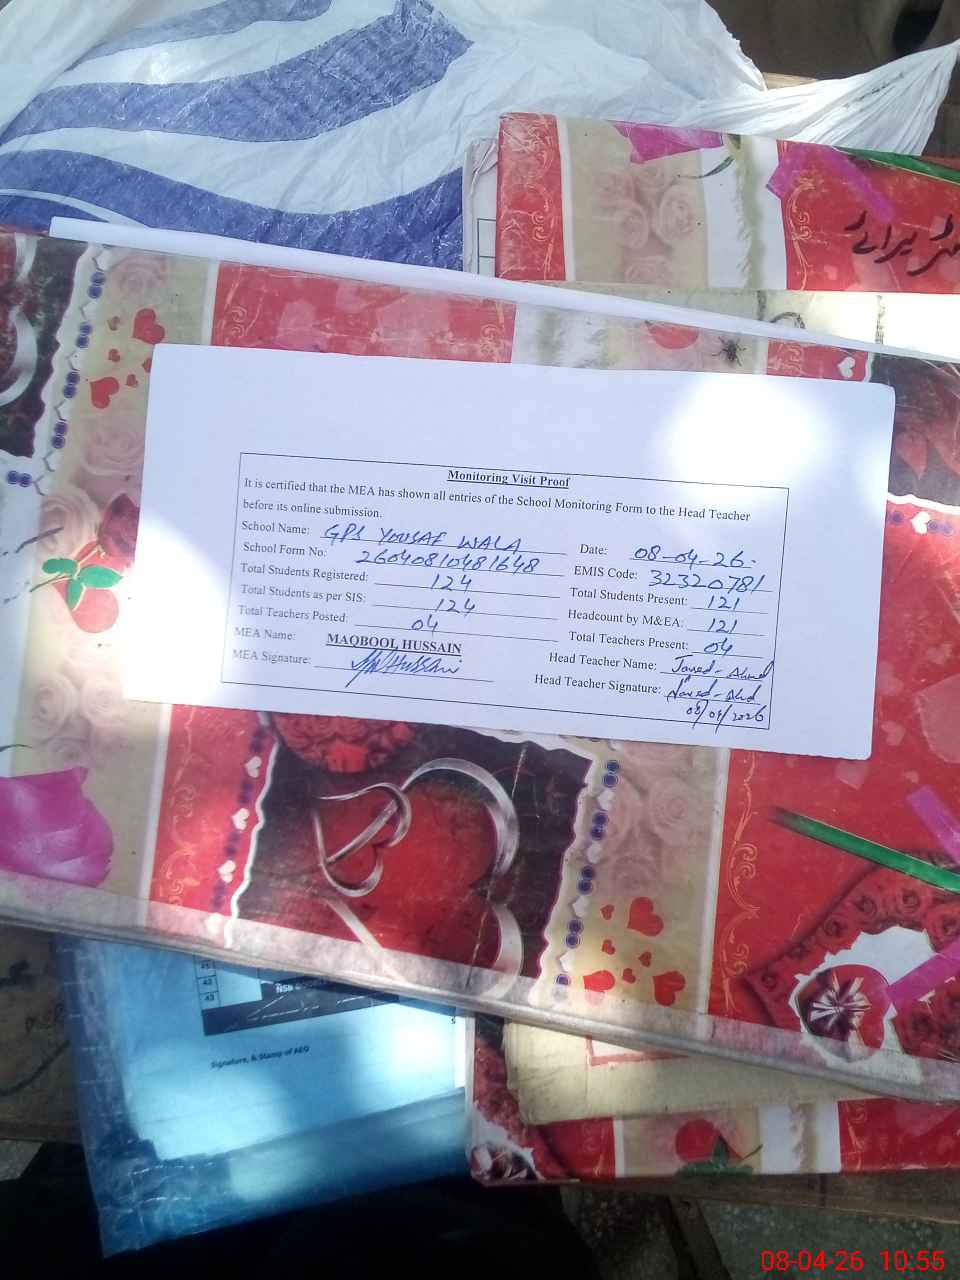 Monitoring Visit Proof
It is certified that the MEA has shown all entries of the School Monitoring Form to the Head Teacher
before its online submission.
School Name: GPS YOUSAF WALA Date: 08-04-26.
School Form No: 26040810481648 EMIS Code: 32320781
Total Students Registered: 124 Total Students Present: 121
Total Students as per SIS: 124 Headcount by M&EA: 121
Total Teachers Posted: 04 Total Teachers Present: 04
MEA Name: MAQBOOL HUSSAIN Head Teacher Name: Javed-Ahmd
MEA Signature: Hussain Head Teacher Signature: Javed-Ahd
08/04/2026
42
43
Signature, & Stamp of AEO
08-04-26 10:55